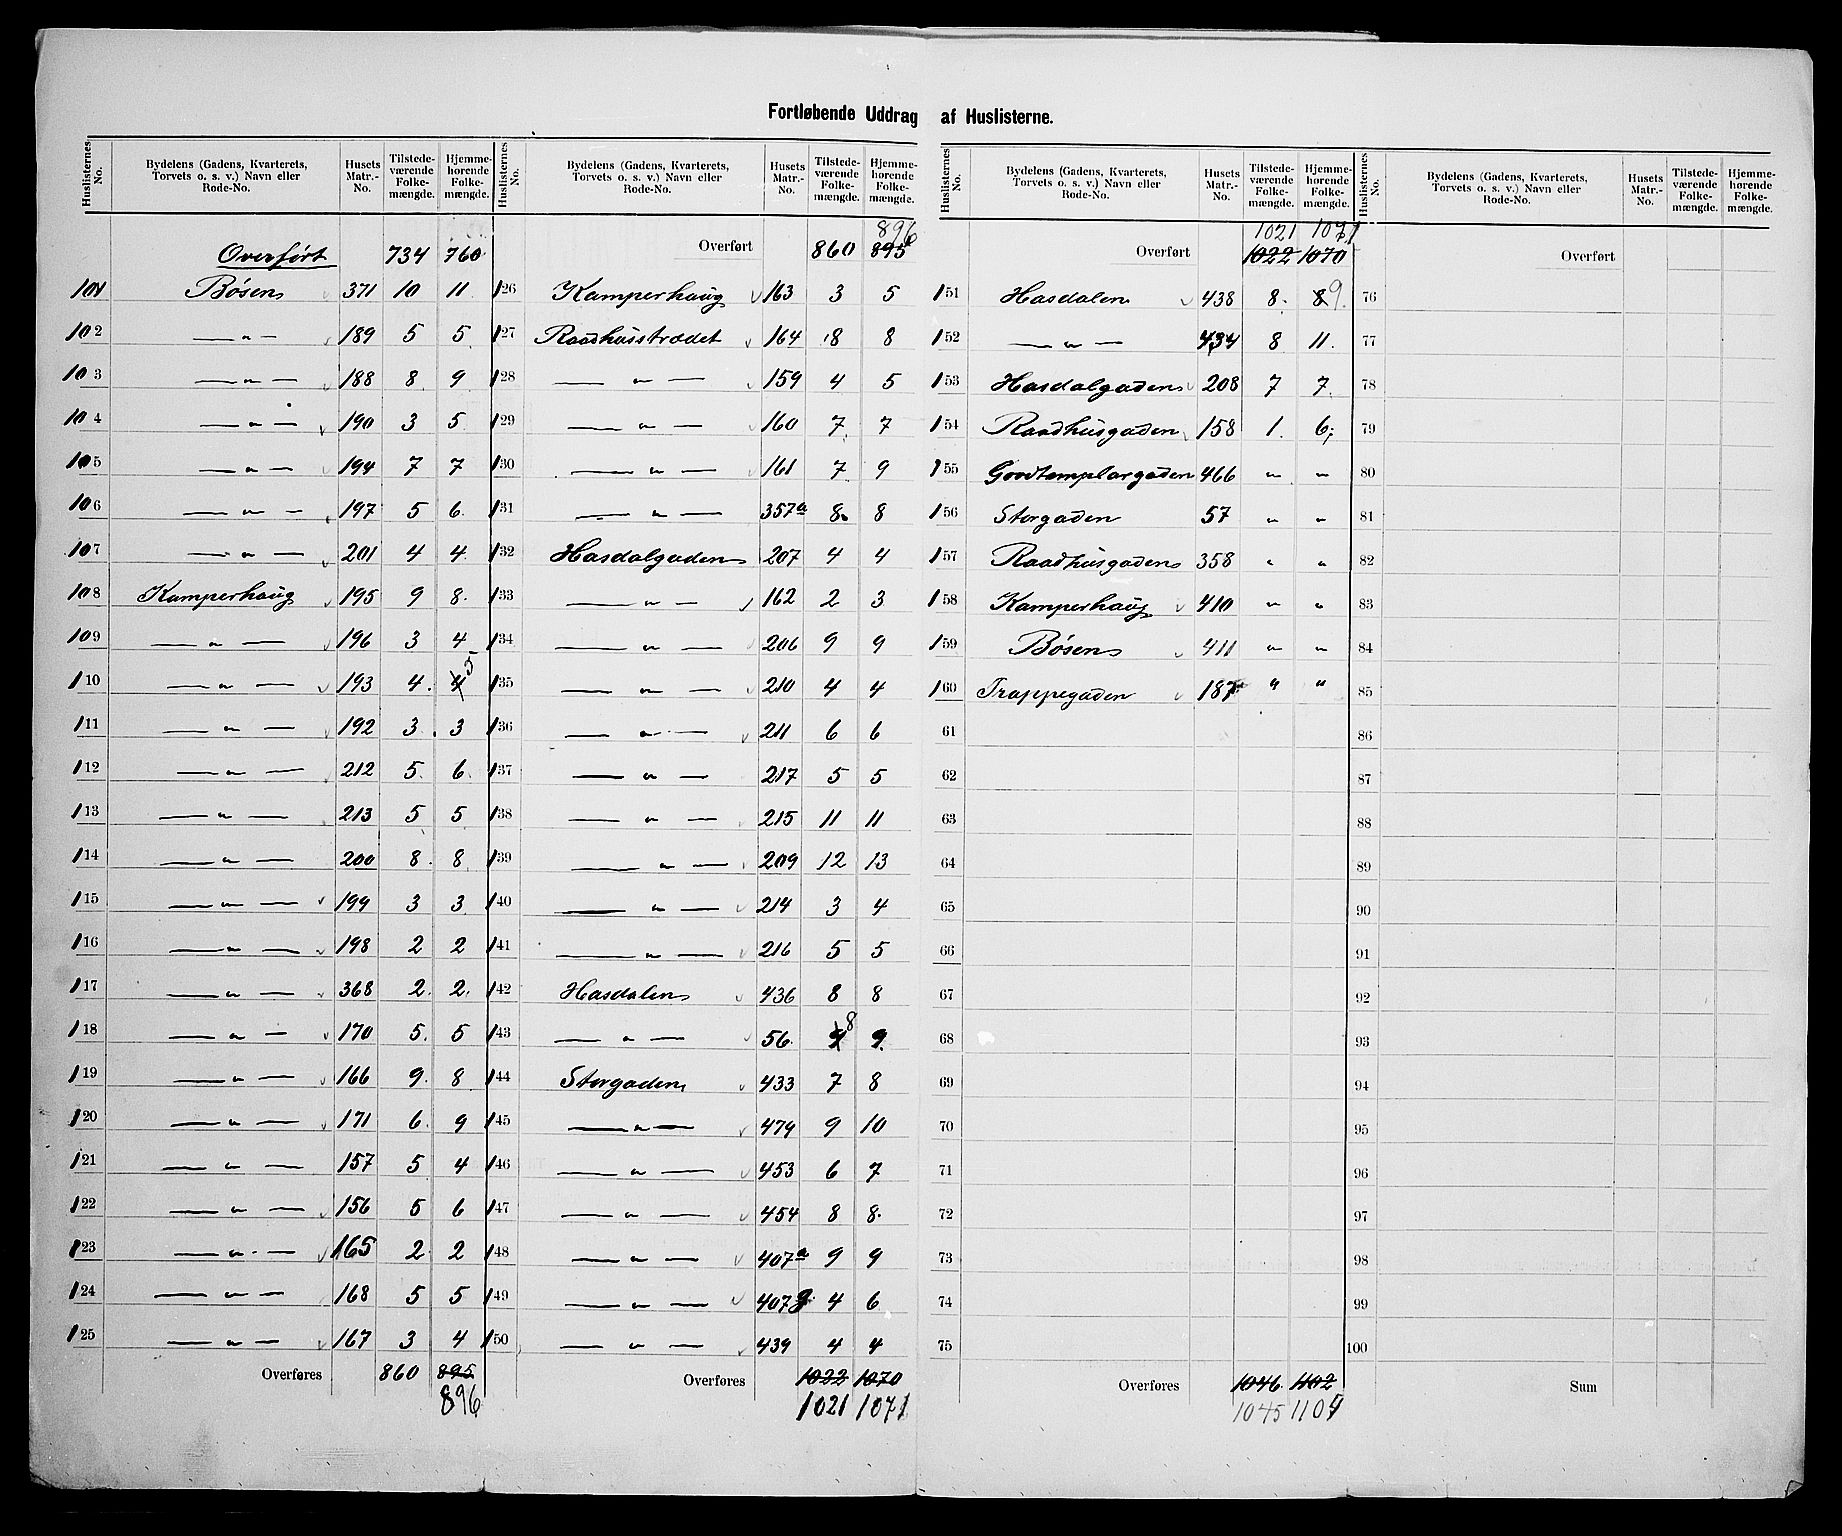 Fortløbende Uddrag af Huslisterne.
Huslisternes No. | Bydelens (Gadens, Kvarterets, Torvets o. s. v.) Navn eller Rode-No. | Husets Matr.-No. | Tilstedeværende Folkemængde. | Hjemmehørende Folkemængde.
Overført 734 760
101 Bøsen 371 10 11
102 — " — 189 5 5
103 — " — 188 8 9
104 — " — 190 3 5
105 — " — 194 7 7
106 — " — 197 5 6
107 — " — 201 4 4
108 Kamperhaug 195 9 8
109 — " — 196 3 4
110 — " — 193 4 4 5
111 — " — 192 3 3
112 — " — 212 5 6
113 — " — 213 5 5
114 — " — 200 8 8
115 — " — 199 3 3
116 — " — 198 2 2
117 — " — 368 2 2
118 — " — 170 5 5
119 — " — 166 9 8
120 — " — 171 6 9
121 — " — 157 5 4
122 — " — 156 5 6
123 — " — 165 2 2
124 — " — 168 5 5
125 — " — 167 3 4
Overføres 860 895
896
Huslisternes No. | Bydelens (Gadens, Kvarterets, Torvets o. s. v.) Navn eller Rode-No. | Husets Matr.-No. | Tilstedeværende Folkemængde. | Hjemmehørende Folkemængde.
896
Overført 860 895
126 Kamperhaug 163 3 5
127 Raadhusstrædet 164 8 8
128 — " — 159 4 5
129 — " — 160 7 7
130 — " — 161 7 9
131 — " — 357a 8 8
132 Hasdalgaden 207 4 4
133 — " — 162 2 3
134 — " — 206 9 9
135 — " — 210 4 4
136 — " — 211 6 6
137 — " — 217 5 5
138 — " — 215 11 11
139 — " — 209 12 13
140 — " — 214 3 4
141 — " — 216 5 5
142 Hasdalen 436 8 8
143 — " — 56 9 8 9
144 Storgaden 433 7 8
145 — " — 479 9 10
146 — " — 453 6 7
147 — " — 454 8 8
148 — " — 407a 9 9
149 — " — 407 4 6
150 — " — 439 4 4
Overføres 1022 1070
1021 1071
Huslisternes No. | Bydelens (Gadens, Kvarterets, Torvets o. s. v.) Navn eller Rode-No. | Husets Matr.-No. | Tilstedeværende Folkemængde. | Hjemmehørende Folkemængde.
1021 1071
Overført 1022 1070
151 Hasdalen 438 8 8 9
152 — " — 434 8 11
153 Hasdalgaden 208 7 7
154 Raadhusgaden 158 1 6
155 Goodtemplargaden 466 " "
156 Storgaden 57 " "
157 Raadhusgaden 358 " "
158 Kamperhaug 410 " "
159 Bøsen 411 " "
160 Trappegaden 187 " "
61
62
63
64
65
66
67
68
69
70
71
72
73
74
75
Overføres 1046 1102
1045 1104
Huslisternes No. | Bydelens (Gadens, Kvarterets, Torvets o. s. v.) Navn eller Rode-No. | Husets Matr.-No. | Tilstedeværende Folkemængde. | Hjemmehørende Folkemængde.
Overført
76
77
78
79
80
81
82
83
84
85
86
87
88
89
90
91
92
93
94
95
96
97
98
99
100
Sum